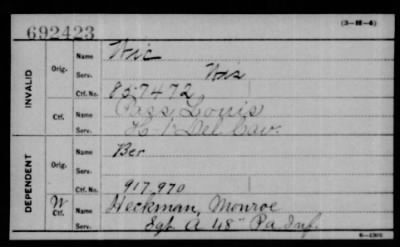 692423
(3-M-4)
INVALID
Orig.
Name Wic
Serv. Wis
Ctf. No. 857472
Ctf.
Name Pass, Louis
Serv. H-1 Del Cav.
DEPENDENT
Orig.
Name Ber
Serv.
Ctf. No. 917,970
W
Ctf.
Name Heckman, Monroe
Serv. Sgt A 48" Pa Inf.